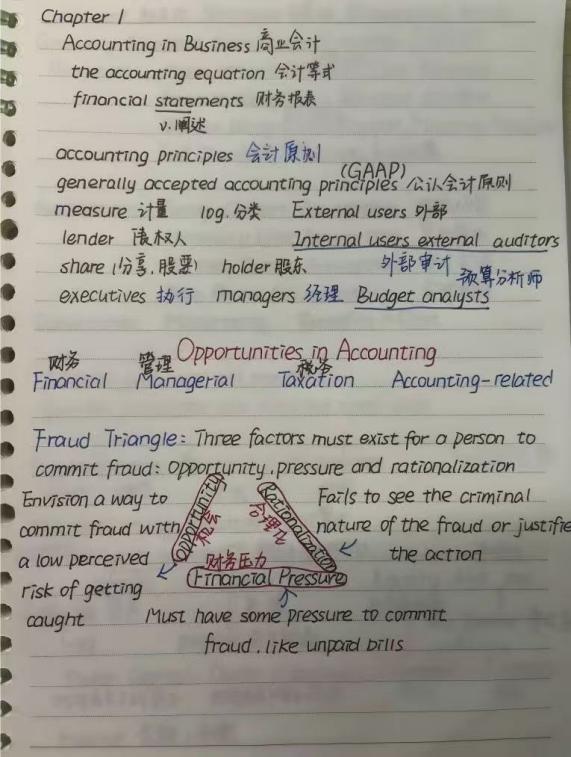 Chapter 1
Accounting in Business 商业会计
the accounting equation 会计等式
financial statements 财务报表
v.阐述
accounting principles 会计原则
(GAAP)
generally accepted accounting principles 公认会计原则
measure 计量 log.分类 External users 外部
lender 债权人 Internal users external auditors
share (分享,股票) holder 股东 外部审计 预算分析师
executives 执行 managers 经理 Budget analysts
Opportunities in Accounting
财务 管理 税务
Financial Managerial Taxation Accounting-related
Fraud Triangle: Three factors must exist for a person to
commit fraud: opportunity, pressure and rationalization
Envision a way to
commit fraud with
a low perceived
risk of getting
caught
Opportunity
机会
Rationalization
合理化
财务压力
Financial Pressure
Fails to see the criminal
nature of the fraud or justifie
the action
Must have some pressure to commit
fraud, like unpaid bills